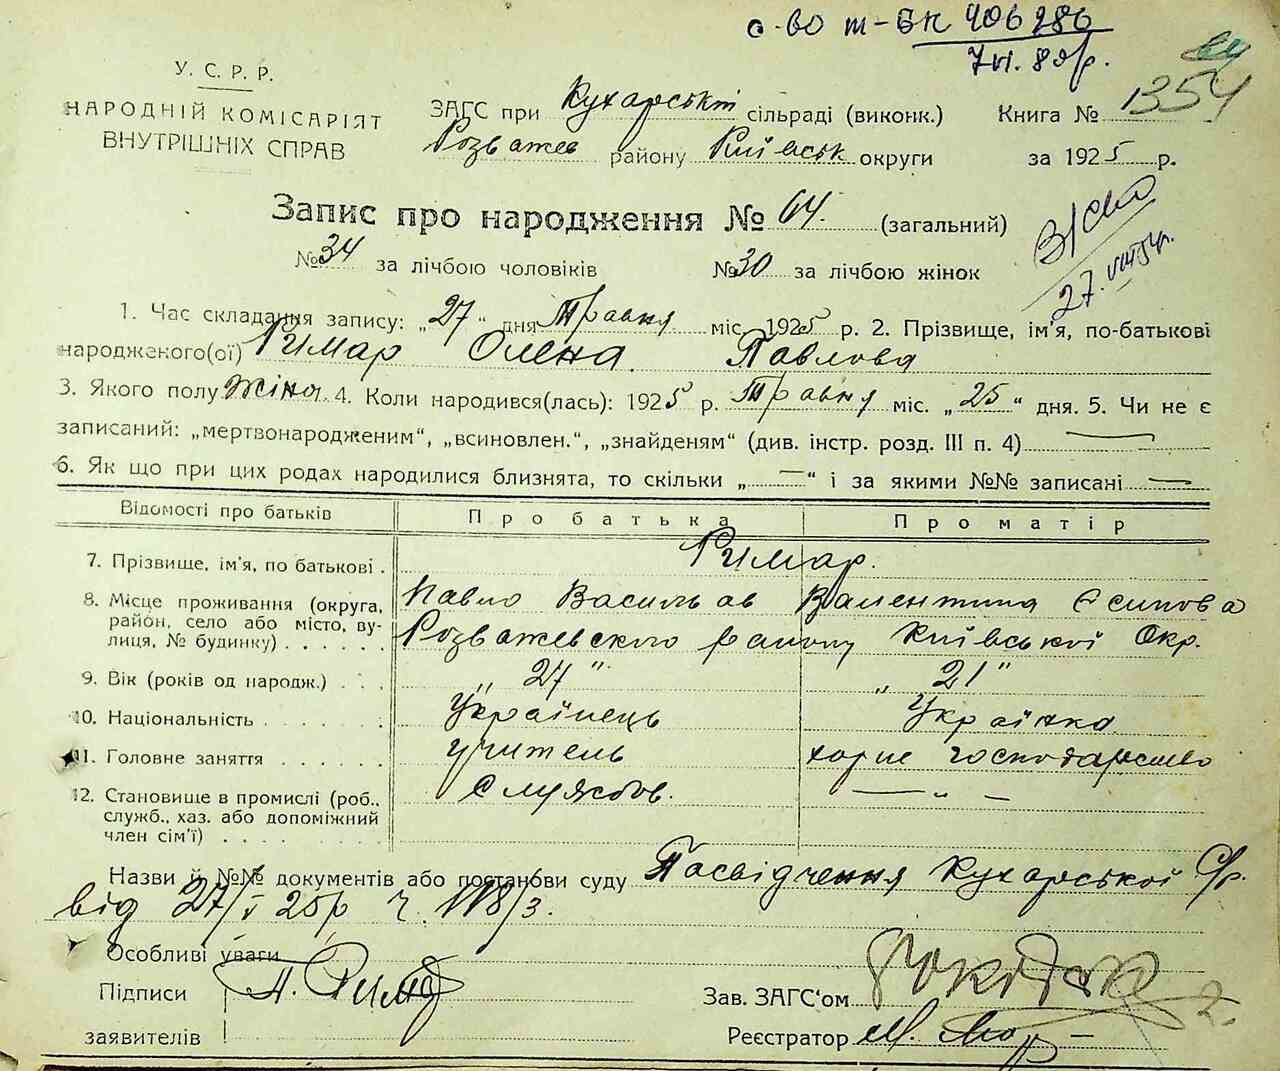 с-во т-БК 406286
7 VI. 89р.
У. С. Р. Р.
НАРОДНІЙ КОМІСАРІЯТ
ВНУТРІШНІХ СПРАВ
ЗАГС при Кухарській сільраді (виконк.) Книга № 1354
Розважев району Київськ округи за 1925 р.
Запис про народження № 64. (загальний)
№ 34 за лічбою чоловіків № 30 за лічбою жінок
27. VIII 54р.
1. Час складання запису: „27“ дня Травня міс. 1925 р. 2. Прізвище, ім'я, по-батькові
народженого(ої) Римар Олена Павлова
3. Якого полу Жіно. 4. Коли народився(лась): 1925 р. Травня міс. „25“ дня. 5. Чи не є
записаний: „мертвонародженим“, „всиновлен.“, „знайденям“ (див. інстр. розд. III п. 4) —
6. Як що при цих родах народилися близнята, то скільки „—“ і за якими №№ записані —
Відомості про батьків Про батька Про матір
7. Прізвище, ім'я, по батькові . Римар.
8. Місце проживання (округа, район, село або місто, вулиця, № будинку) . . . . . .
Павло Васильов Валентина Єсипова
Розважевского району Київської Окр.
9. Вік (років од народж.) . . . „27“ „21“
10. Національність . . . . . . . Українець Українка
11. Головне заняття . . . . . . учитель хатнє господарство
12. Становище в промислі (роб., служб., хаз. або допоміжний член сім'ї) . . . . . . . . Службов. — „ —
Назви й №№ документів або постанови суду Посвідчення Кухарської С/р.
від 27/V 25р ч. 118/3.
Особливі уваги
Підписи П. Римар Зав. ЗАГС'ом
заявителів Реєстратор М.